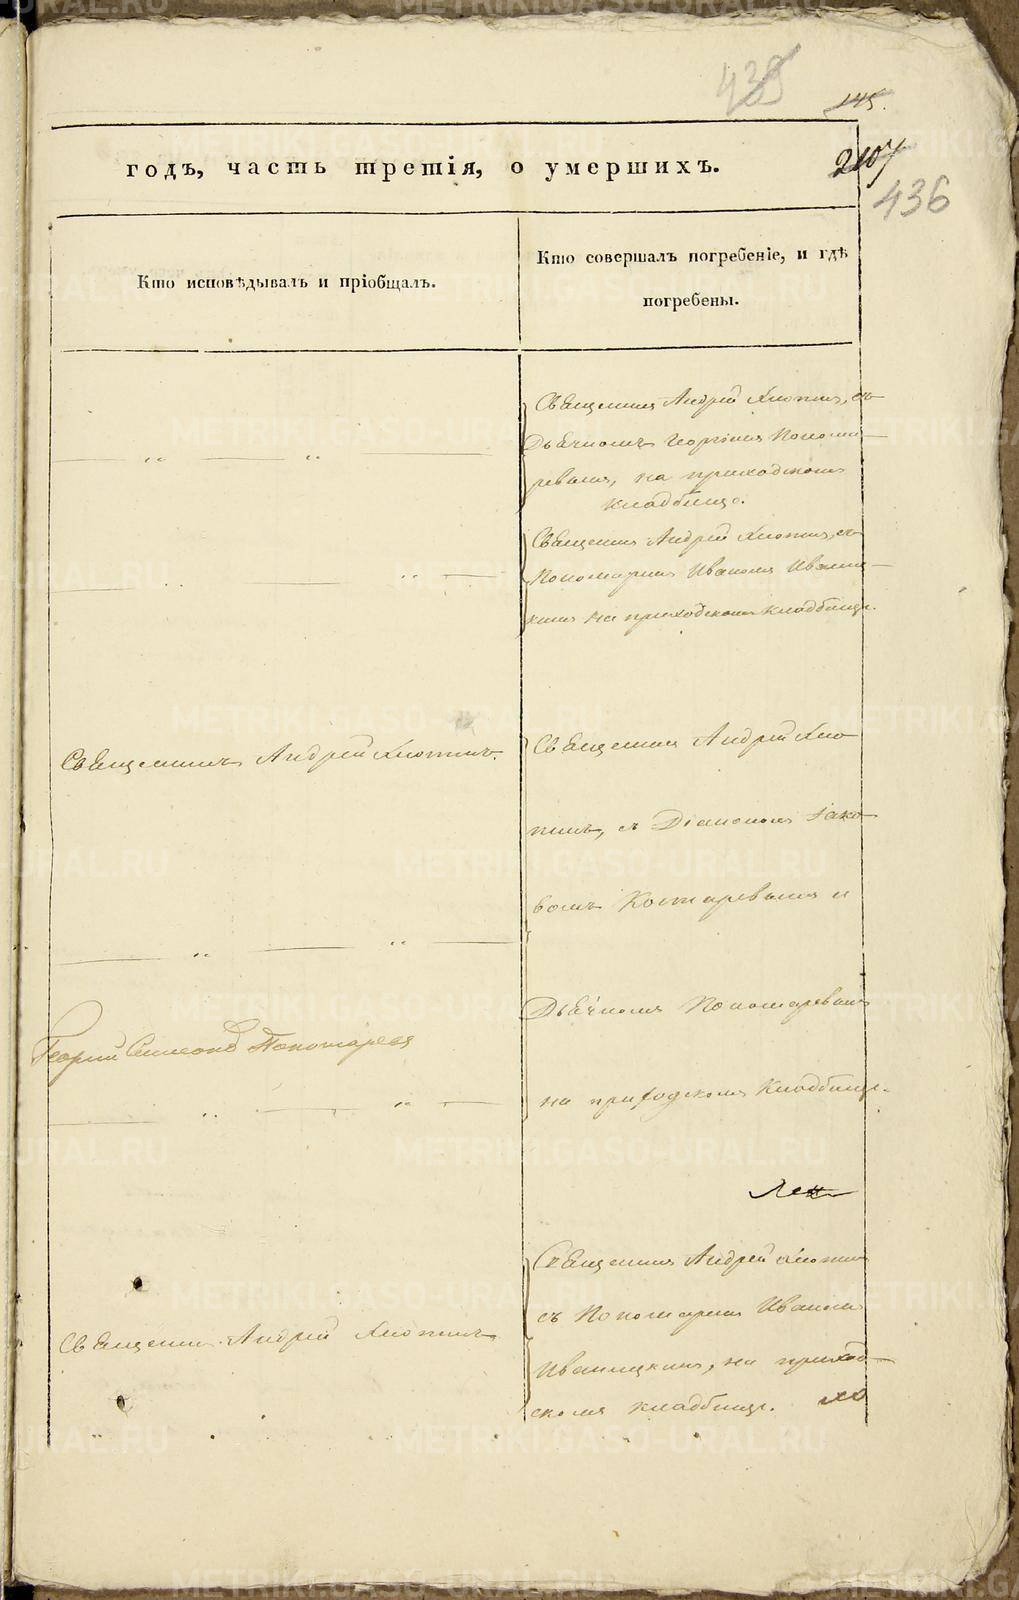 439
145.
годъ, часть третія, о умершихъ.
2107
436
Кто исповѣдывалъ и пріобщалъ.
Кто совершалъ погребеніе, и гдѣ
погребены.
Священникъ Андрей Хлопинъ, съ
Дьячкомъ Георгіемъ Понома-
ревымъ, на приходскомъ
кладбище.
Священникъ Андрей Хлопинъ, съ
Пономаремъ Иваномъ Иваниц-
кимъ на приходскомъ кладбище.
Священникъ Андрей Хлопинъ.
Священникъ Андрей Хло
пинъ, съ Діакономъ Іако
вомъ Костаревымъ и
Дьячкомъ Пономаревымъ
Георгий Пономарев
на приходскомъ Кладбище.
Священникъ Андрей Хлопинъ
съ Пономаремъ Иваномъ
Священникъ Андрей Хлопинъ
Иваницкимъ, на приход-
скомъ кладбище.
METRIKI.GASO-URAL.RU